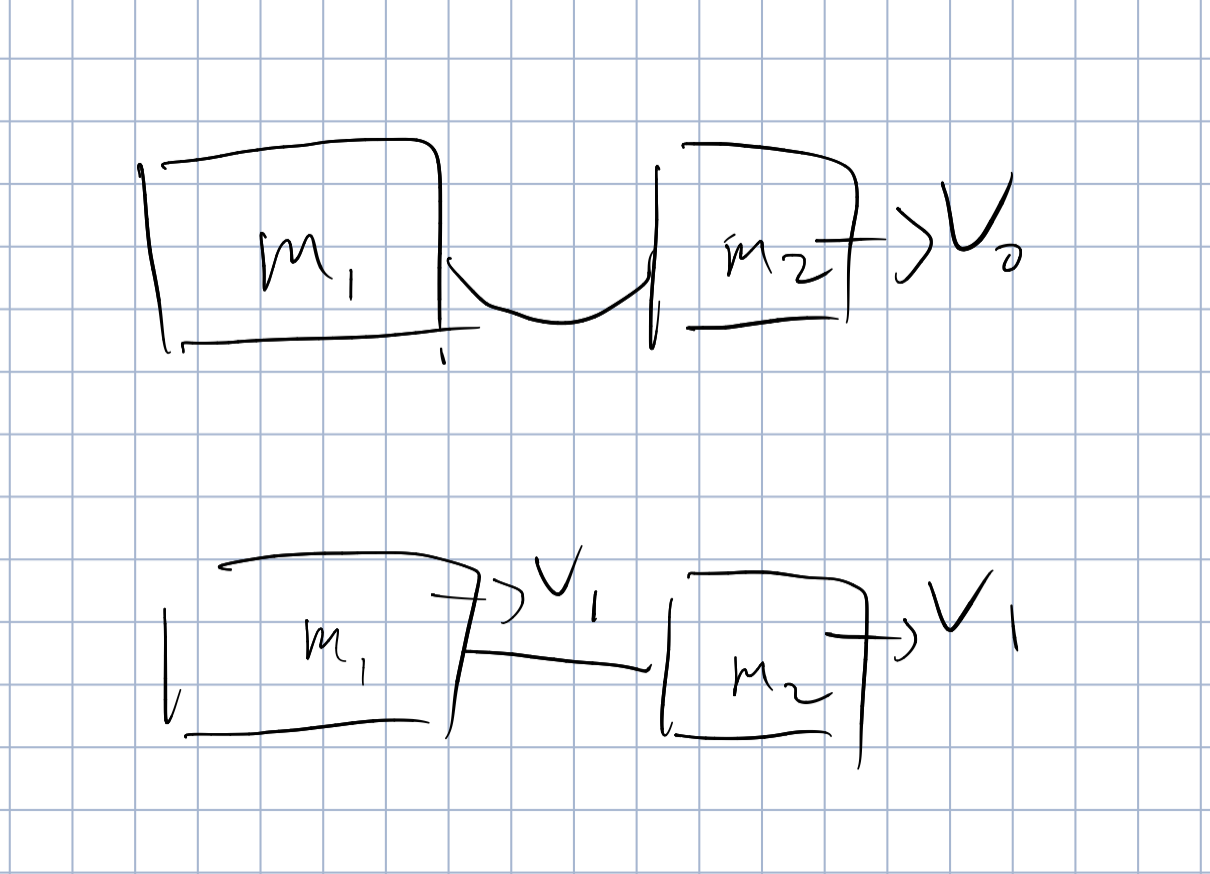 m₁ m₂ V₀
m₁ V₁ m₂ V₁